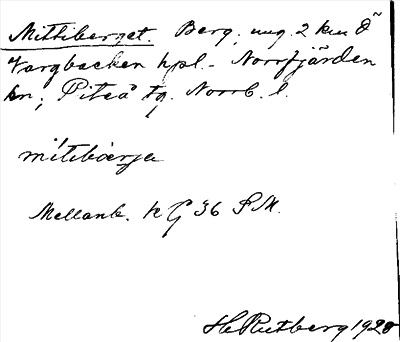 Mittiberget. Berg, ung. 2 km Ö
Vargbacken hpl. - Norrfjärden
sn, Piteå tg. Norrb. l.
mítibàrja
Mellanb. K G 36 S M.
H Rutberg 1928